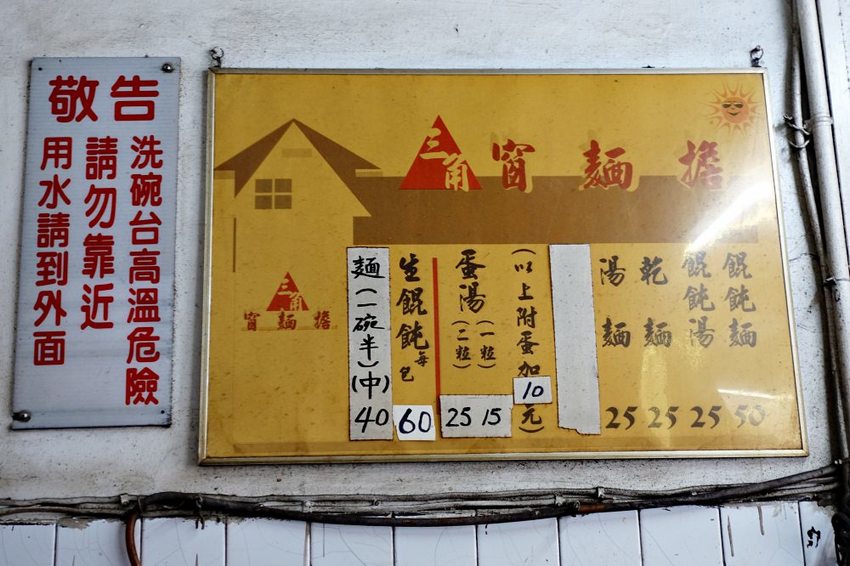 敬告
洗碗台高溫危險
請勿靠近
用水請到外面
三角窗麵擔
餛飩麵 50
餛飩湯 25
乾麵 25
湯麵 25
(以上附蛋加10元)
蛋湯
(一粒) 15
(二粒) 25
生餛飩每包 60
麵(一碗半)(中) 40
三角
窗麵擔